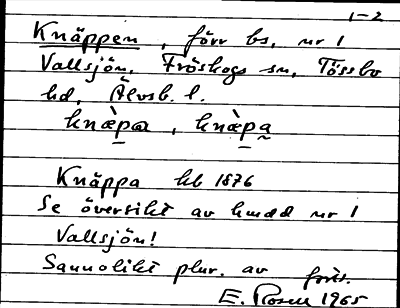 1-2
Knäppen, förr bs, nr 1
Vallsjön, Fröskogs sn, Tössbo
hd, Älvsb. l.
knæ̀pa, knæ̀pa̰
Knäppa hb 1876
Se översikt av hmdd nr 1
Vallsjön!
Sannolikt plur. av föreg.
E. Rosell 1965